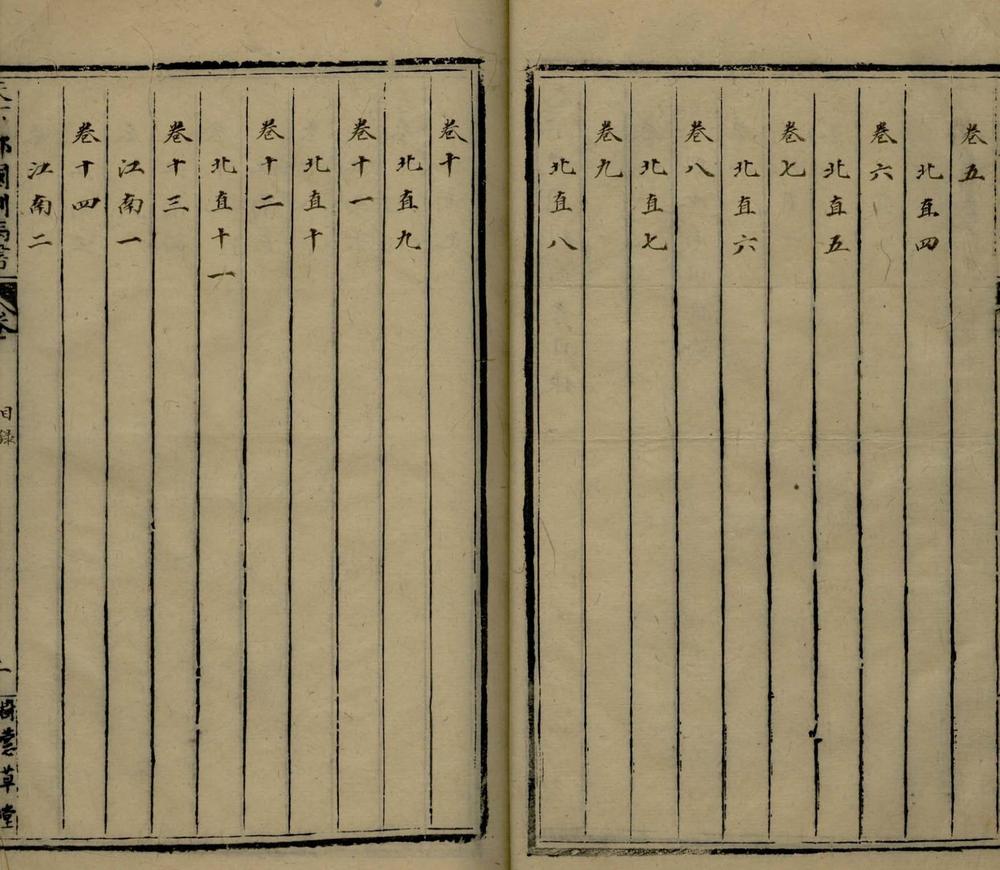 卷五
北直四
卷六
北直五
卷七
北直六
卷八
北直七
卷九
北直八
卷十
北直九
卷十一
北直十
卷十二
北直十一
卷十三
江南一
卷十四
江南二
目錄
草堂